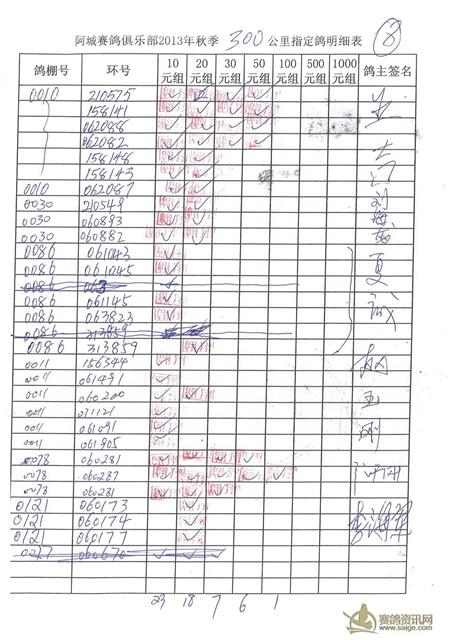 阿城赛鸽俱乐部2013年秋季 300 公里指定鸽明细表 8
鸽棚号 环号 10元组 20元组 30元组 50元组 100元组 500元组 1000元组 鸽主签名
0010 210575 ✓ ✓ ✓ ✓
158141 ✓ ✓ ✓ ✓
062088 ✓ ✓ ✓ ✓
062082 ✓ ✓ ✓ ✓
158148 ✓ ✓
158143 ✓ ✓
0010 062087 ✓ ✓
0030 210549 ✓ ✓ 刘
0030 060893 ✓ ✓
0030 060882 ✓ ✓
0086 061043 ✓ 夏
0086 061045 ✓
0086
0086 061145 ✓
0086 063823 ✓
0086 313859
0086 313859 ✓
0011 156344 ✓
0011 061491 ✓
0011 060200 ✓
0011 071121 ✓
0011 061091 ✓
0011 061905 ✓
0078 060281 ✓ ✓ ✓ ✓
0078 060287 ✓ ✓ ✓ ✓ ✓
0078 060281 ✓ ✓ ✓
0121 060173 ✓
0121 060174 ✓
0121 060177 ✓
060670 ✓ ✓ ✓
23 18 7 6 1
赛鸽资讯网
www.saige.com